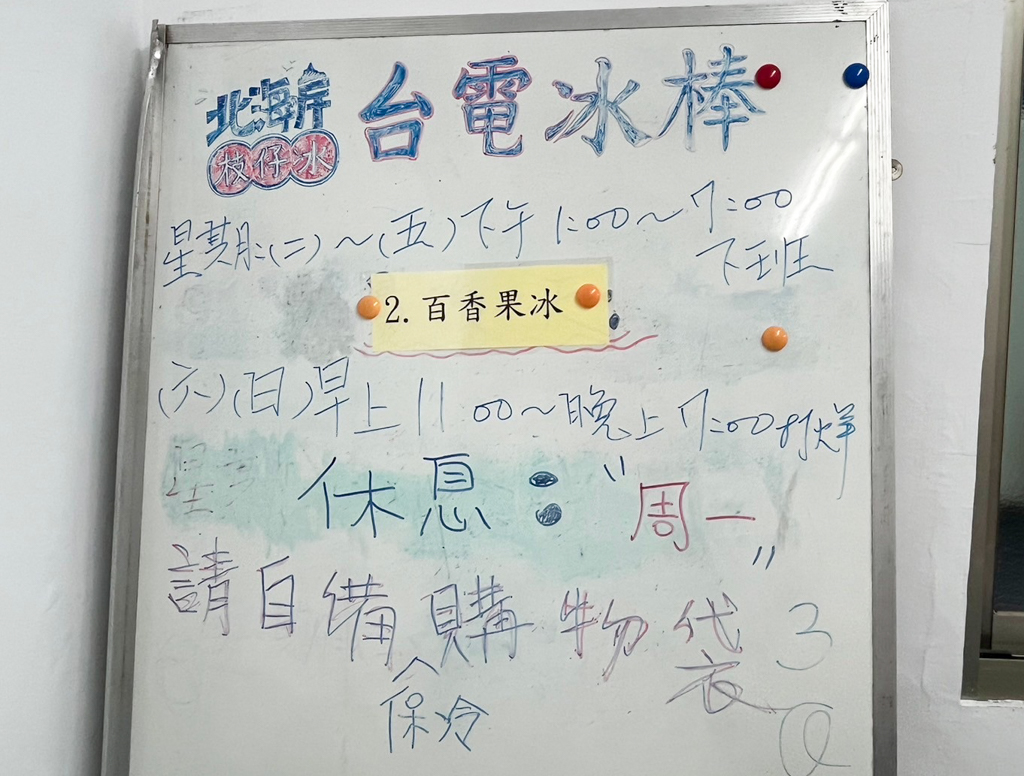 北海岸 台電冰棒
枝仔冰
星期:(二)~(五)下午1:00~7:00
下班
2.百香果冰
(六)(日)早上11 00~晚上7:00打烊
休息:"周一"
請自備購物袋
保冷
3